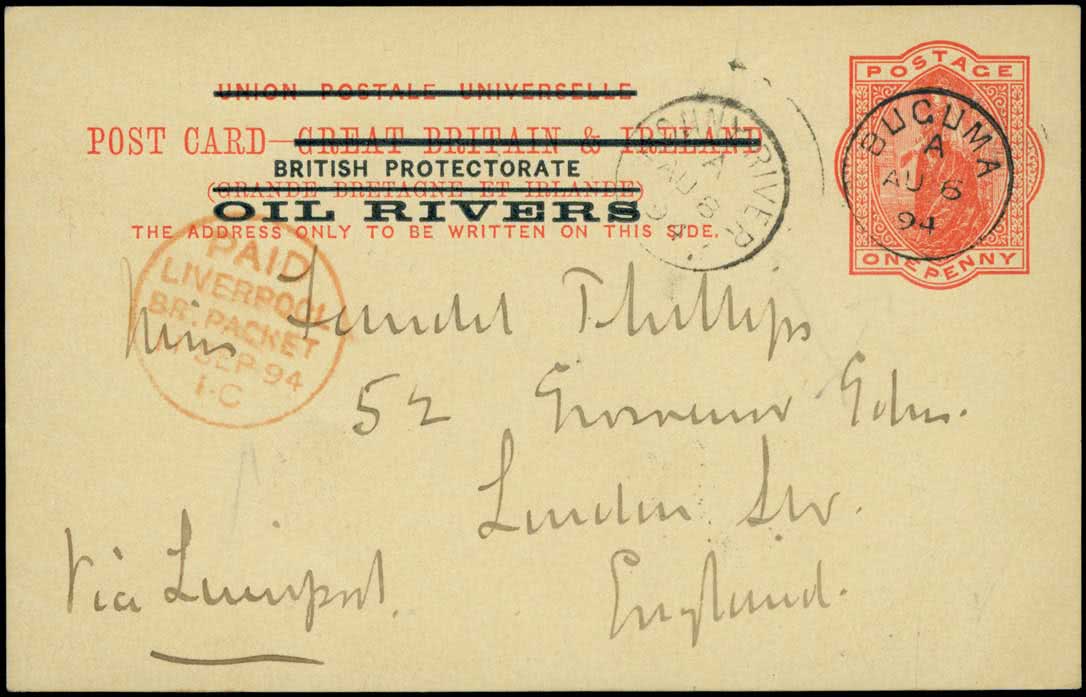 UNION POSTALE UNIVERSELLE
POST CARD—GREAT BRITAIN & IRELAND
BRITISH PROTECTORATE
(GRANDE BRETAGNE ET IRLANDE)
OIL RIVERS
THE ADDRESS ONLY TO BE WRITTEN ON THIS SIDE.
BONNY RIVER
A
AU 8
94
POSTAGE
ONE PENNY
BUGUMA
A
AU 6
94
PAID
LIVERPOOL
BR. PACKET
SEP 94
1·C
Miss Phillips
52 Grosvenor Gdns.
London SW.
England.
Via Liverpool.